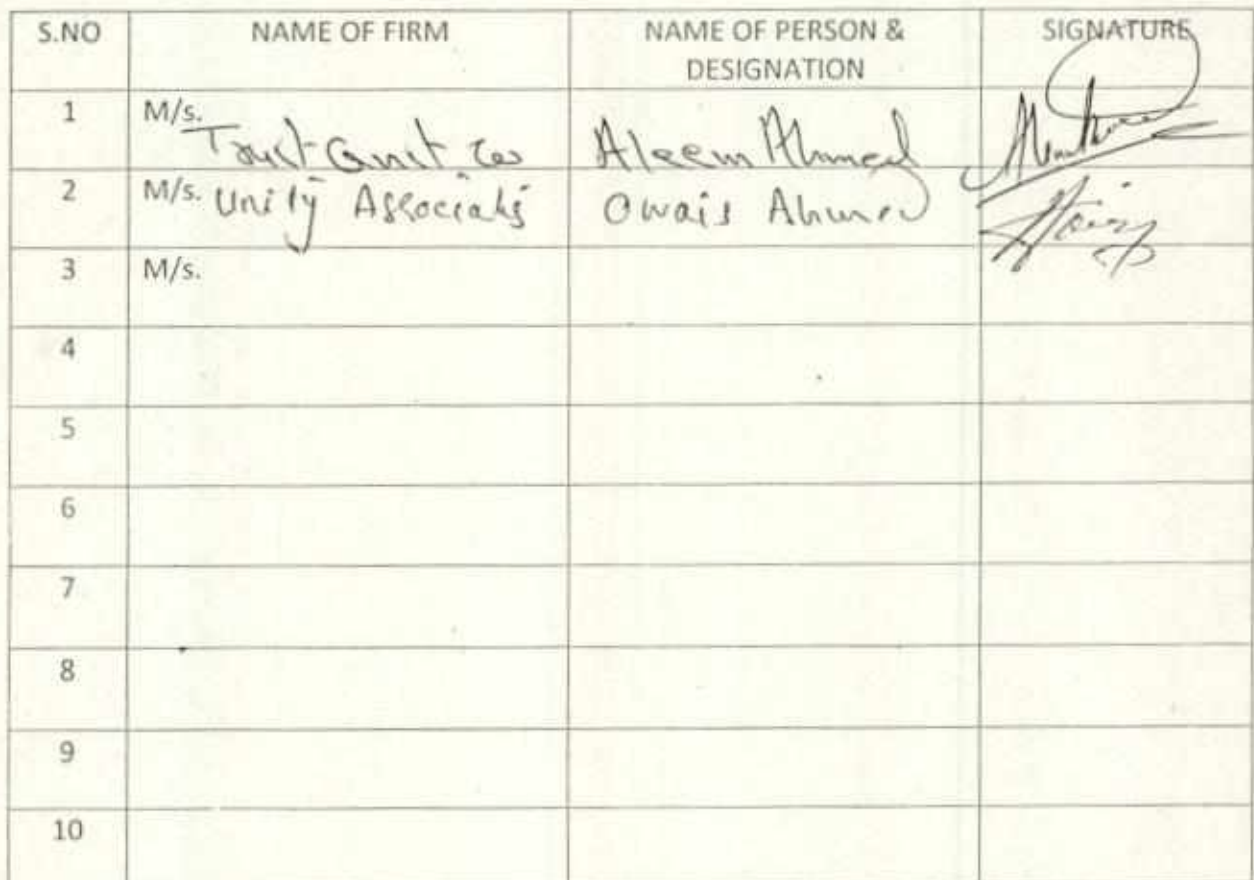 S.NO NAME OF FIRM NAME OF PERSON & SIGNATURE
DESIGNATION
1 M/s. Trust Const Co Aleem Ahmed
2 M/s. Unity Associats Owais Ahmed
3 M/s.
4
5
6
7
8
9
10